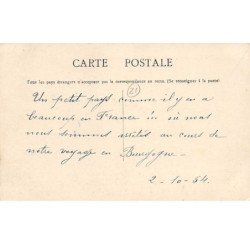 CARTE POSTALE
Tous les pays étrangers n'acceptent pas la correspondance au recto. (Se renseigner à la poste)
21
Un petit pays comme il y en a
beaucoup en France :.. où nous
nous sommes arrêtés au cours de
notre voyage en Bourgogne -
2-10-64.